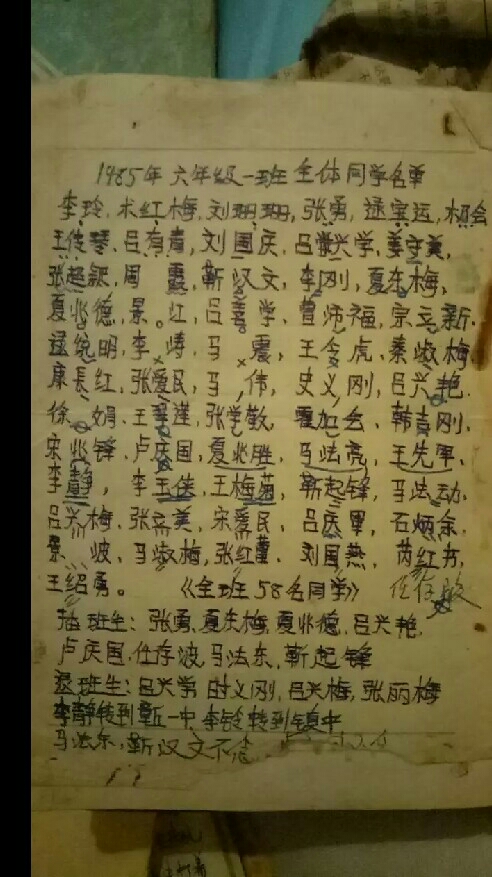 1985年六年级一班全体同学名单
李玲,术红梅,刘珊珊,张勇,逯宝运,
王传琴,吕有青,刘国庆,吕兴学,姜守美,
张起,周霞,靳汉文,李刚,夏东梅,
夏兆德,景红,吕善学,曹帅福,宗立新,
逯统明,李涛,马震,王金虎,秦淑梅
康长红,张爱民,马伟,史义刚,吕兴艳,
徐娟,王莲,张学敏,霍加,韩吉刚,
宋兆锋,卢庆国,夏兆胜,马法亮,王先军,
李静,李玉侠,王梅菊,靳起锋,马法动,
吕兴梅,张立美,宋爱民,吕庆军,石炳余,
景波,马淑梅,张红,刘国燕,芮红方,
王绍勇。《全班58名同学》任存波
插班生:张勇,夏东梅,夏兆德,吕兴艳,
卢庆国,任存波,马法东,靳起锋
退班生:吕兴学,时义刚,吕兴梅,张丽梅
李静转到新一中,李铃转到镇中
马法东,靳汉文不